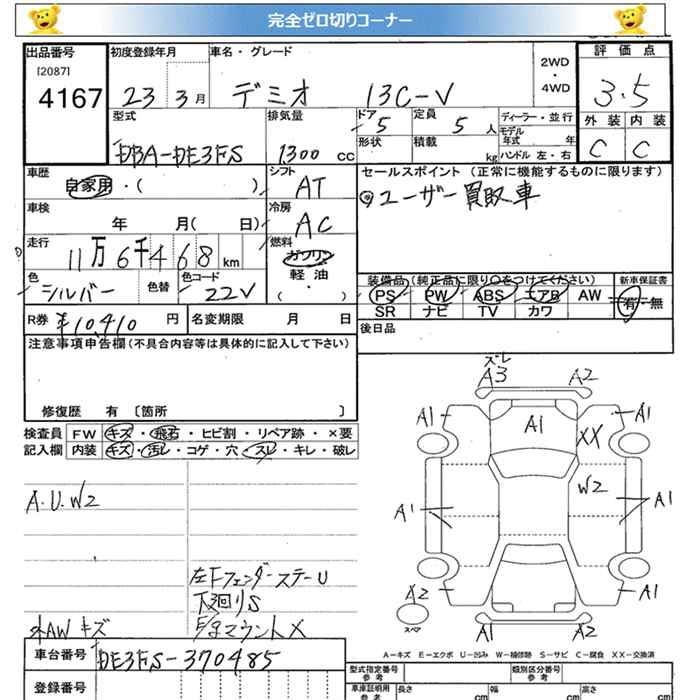 完全ゼロ切りコーナー
出品番号 初度登録年月 車名・グレード 2WD・4WD 評価点
[2087]
4167 23 3月 デミオ 13C-V 3.5
型式 排気量 ドア 定員 ディーラー・並行 外装 内装
5 5人 モデル年式 年
DBA-DE3FS 1300cc 形状 積載 kg ハンドル 左・右 C C
車歴 シフト セールスポイント (正常に機能するものに限ります)
自家用・( ) AT ユーザー買取車
車検 冷房
年 月( 日) AC
走行 燃料
11万6千468km ガソリン
軽油
( ・ )
色 色替 色コード 装備品(純正品に限り○をつけてください) 新車保証書
シルバー 22V PS PW ABS エアB AW 有・無
SR ナビ TV カワ
R券 ¥10,410円 名変期限 月 日 後日品
注意事項申告欄(不具合内容等は具体的に記入して下さい)
修復歴 有 〔箇所 〕
検査員 FW キズ・飛石・ヒビ割・リペア跡・×要
記入欄 内装 キズ・汚レ・コゲ・穴・スレ・キレ・破レ
ズレ
A3 A2
A1 A1 A1
XX
W2
A1 A1
A2 A1
スペア
A1 A2
A.U.W2
左Fフェンダーステー U
下廻りS
外AWキズ
マウントX
A-キズ E-エクボ U-凹み W-補修跡 S-サビ C-腐食 XX-交換済
車台番号 DE3FS-370485
登録番号
型式指定番号 参考 類別区分番号 参考
車庫証明用 参考 長さ cm 幅 cm 高さ cm